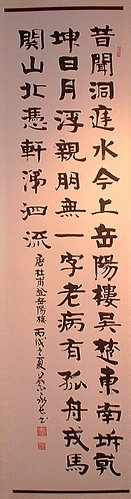 昔聞洞庭水今上岳陽樓吳楚東南坼乾
坤日月浮親朋無一字老病有孤舟戎馬
關山北憑軒涕泗流
唐杜甫登岳陽樓 丙戌之夏